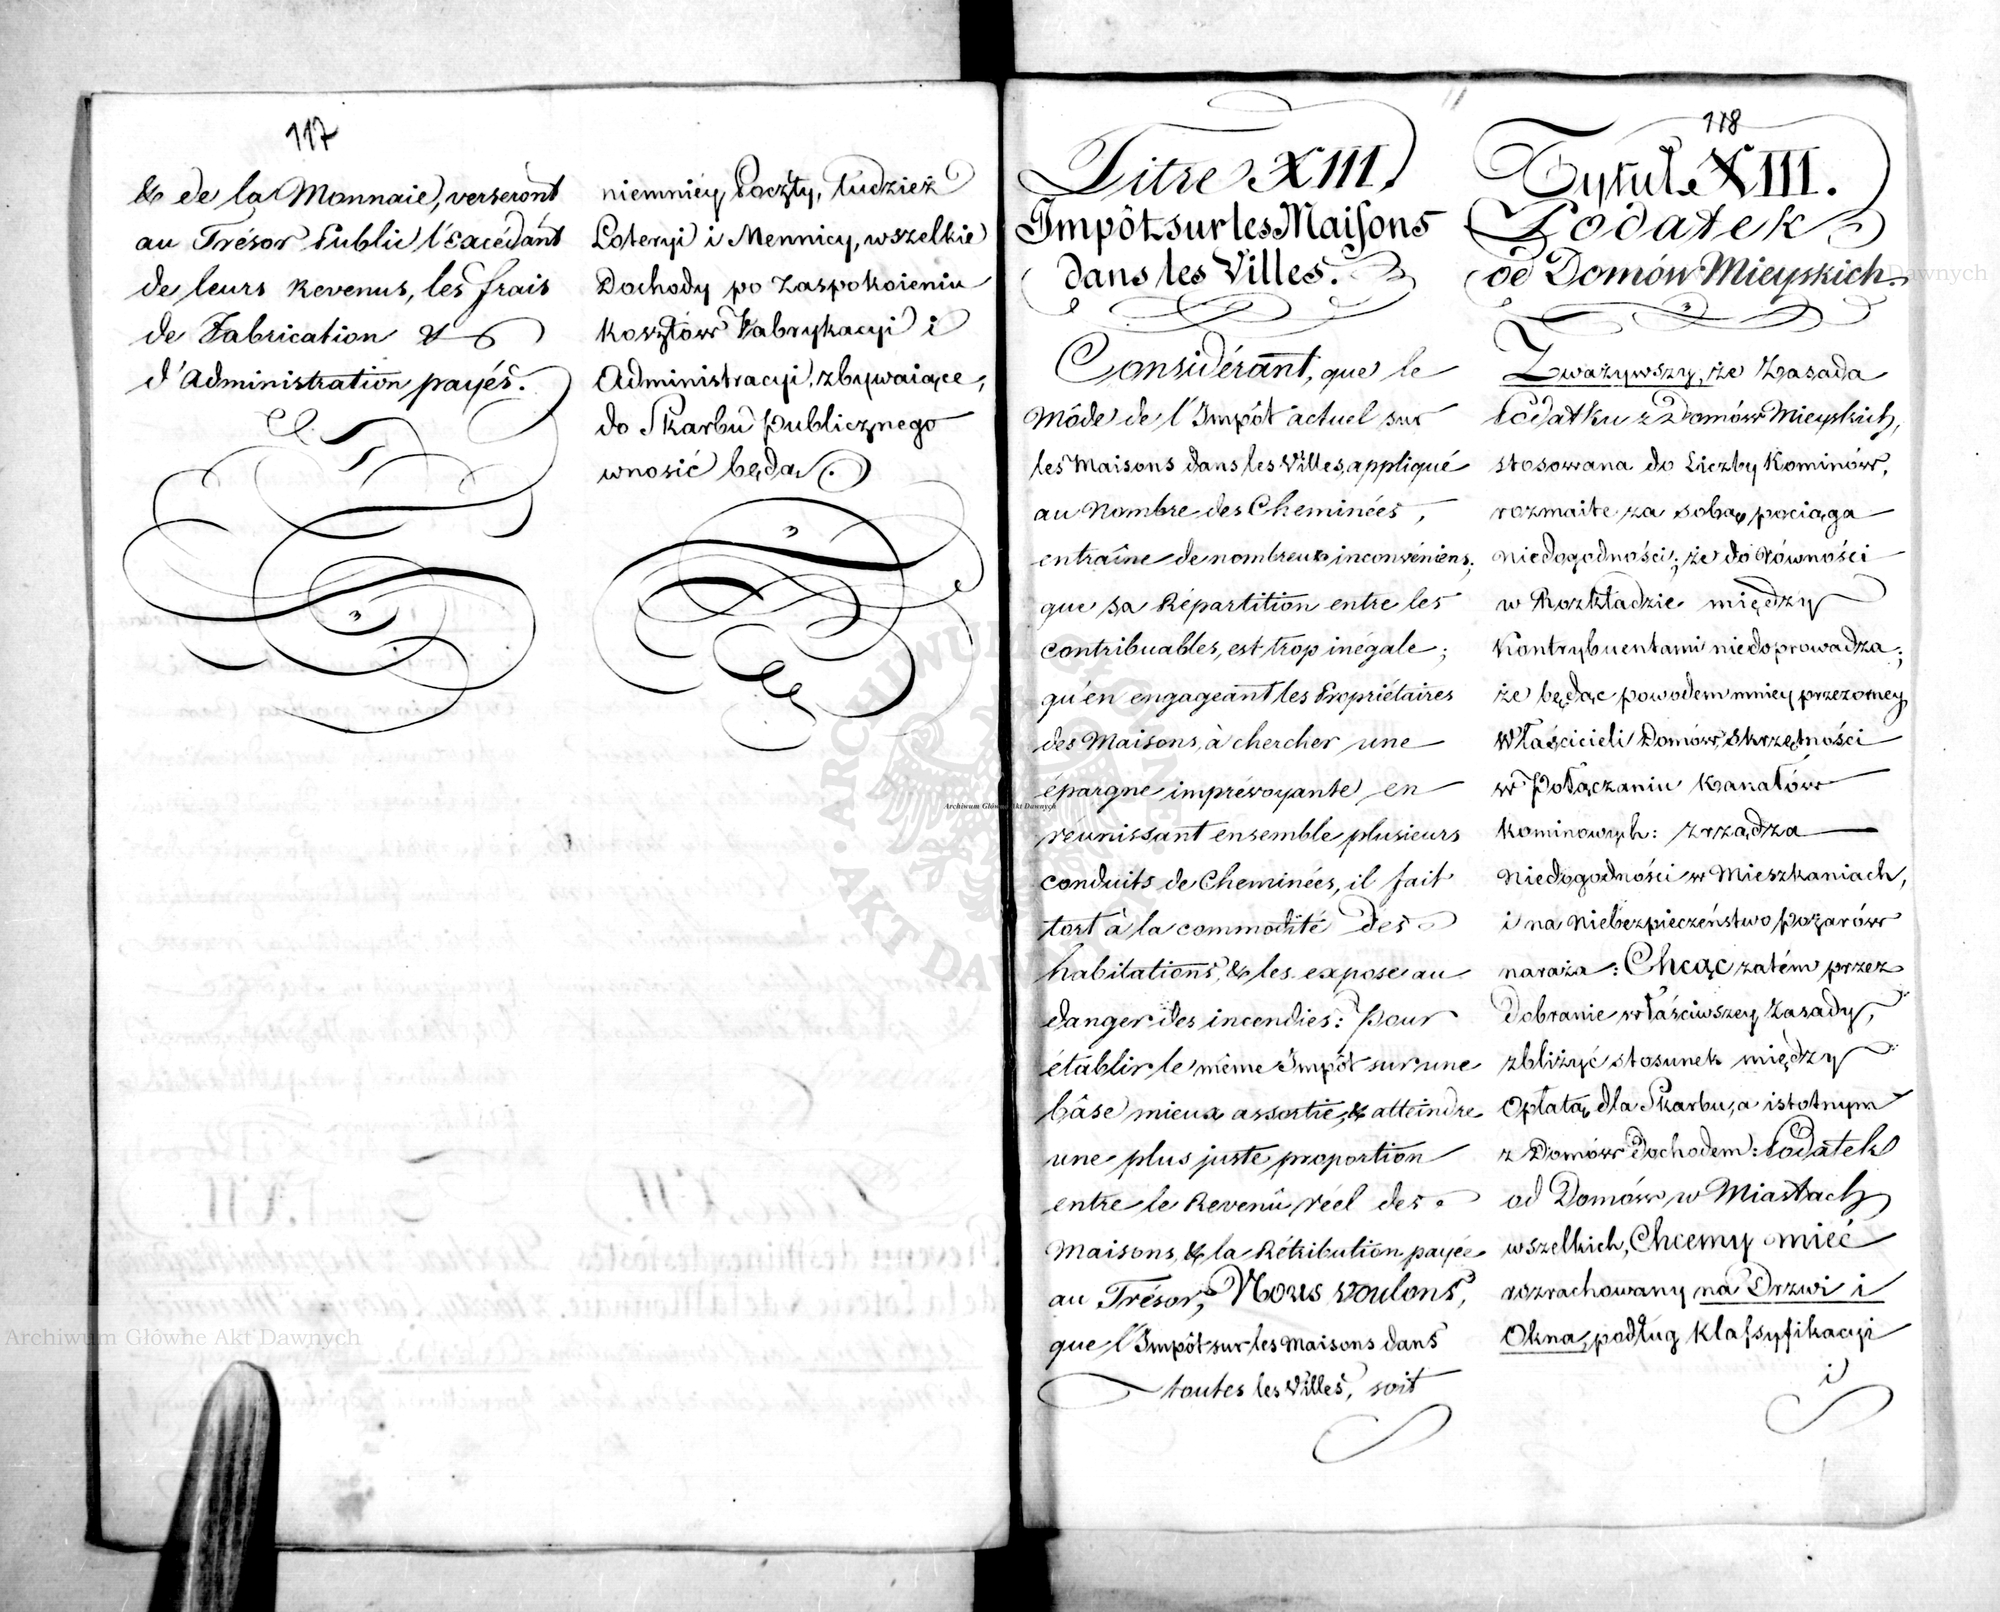 117
& de la Monnaie, verseront
au Trésor Public l'Excédant
de leurs Revenus, les frais
de Fabrication &
d'Administration payés.
niemniéy Poczty, tudzież
Loteryi i Mennicy, wszelkie
Dochody po zaspokoieniu
kosztów Fabrykacyi i
Administracyi, zbywaiące,
do Skarbu publicznego
wnosić będą.
118
Titre XIII.
Impôt sur les Maisons
dans les Villes.
Considérant, que le
Môde de l'Impôt actuel sur
les Maisons dans les Villes, appliqué
au Nombre des Cheminées,
entraîne de nombreux inconvéniens;
que sa Répartition entre les
contribuables, est trop inégale;
qu'en engageant les Propriétaires
des Maisons, à chercher une
épargne imprévoyante en
réunissant ensemble plusieurs
conduits de Cheminées, il fait
tort à la commodité des
habitations, & les expose au
danger des incendies: Pour
établir le même Impôt sur une
bâse mieux assortie, & atteindre
une plus juste proportion
entre le Revenu réel des
Maisons, & la Rétribution payée
au Trésor, Nous voulons,
que l'Impôt sur les Maisons dans
toutes les Villes, soit
Tytuł XIII.
Podatek
od Domów Mieyskich.
Zważywszy, że Zasada
Podatku z Domów Mieyskich,
stosowana do Liczby Kominów,
rozmaite za sobą pociąga
niedogodności; że do równości
w Rozkładzie między
Kontrybuentami niedoprowadza;
że będąc powodem mniey przezorney
Właścicieli Domów, skrzętności
w Połączaniu Kanałów
kominowych: zrządza
niedogodności w Mieszkaniach,
i na niebezpieczeństwo pożarów
naraża: Chcąc zatém przez
Dobranie właściwszey Zasady,
zbliżyć stosunek między
Opłatą dla Skarbu, a istotnym
z Domów Dochodem: Podatek
od Domów w Miastach
wszelkich, Chcemy mieć
rozrachowany na Drzwi i
Okna, podług klassyfikacyi
i
Archiwum Główne Akt Dawnych
Archiwum Główne Akt Dawnych